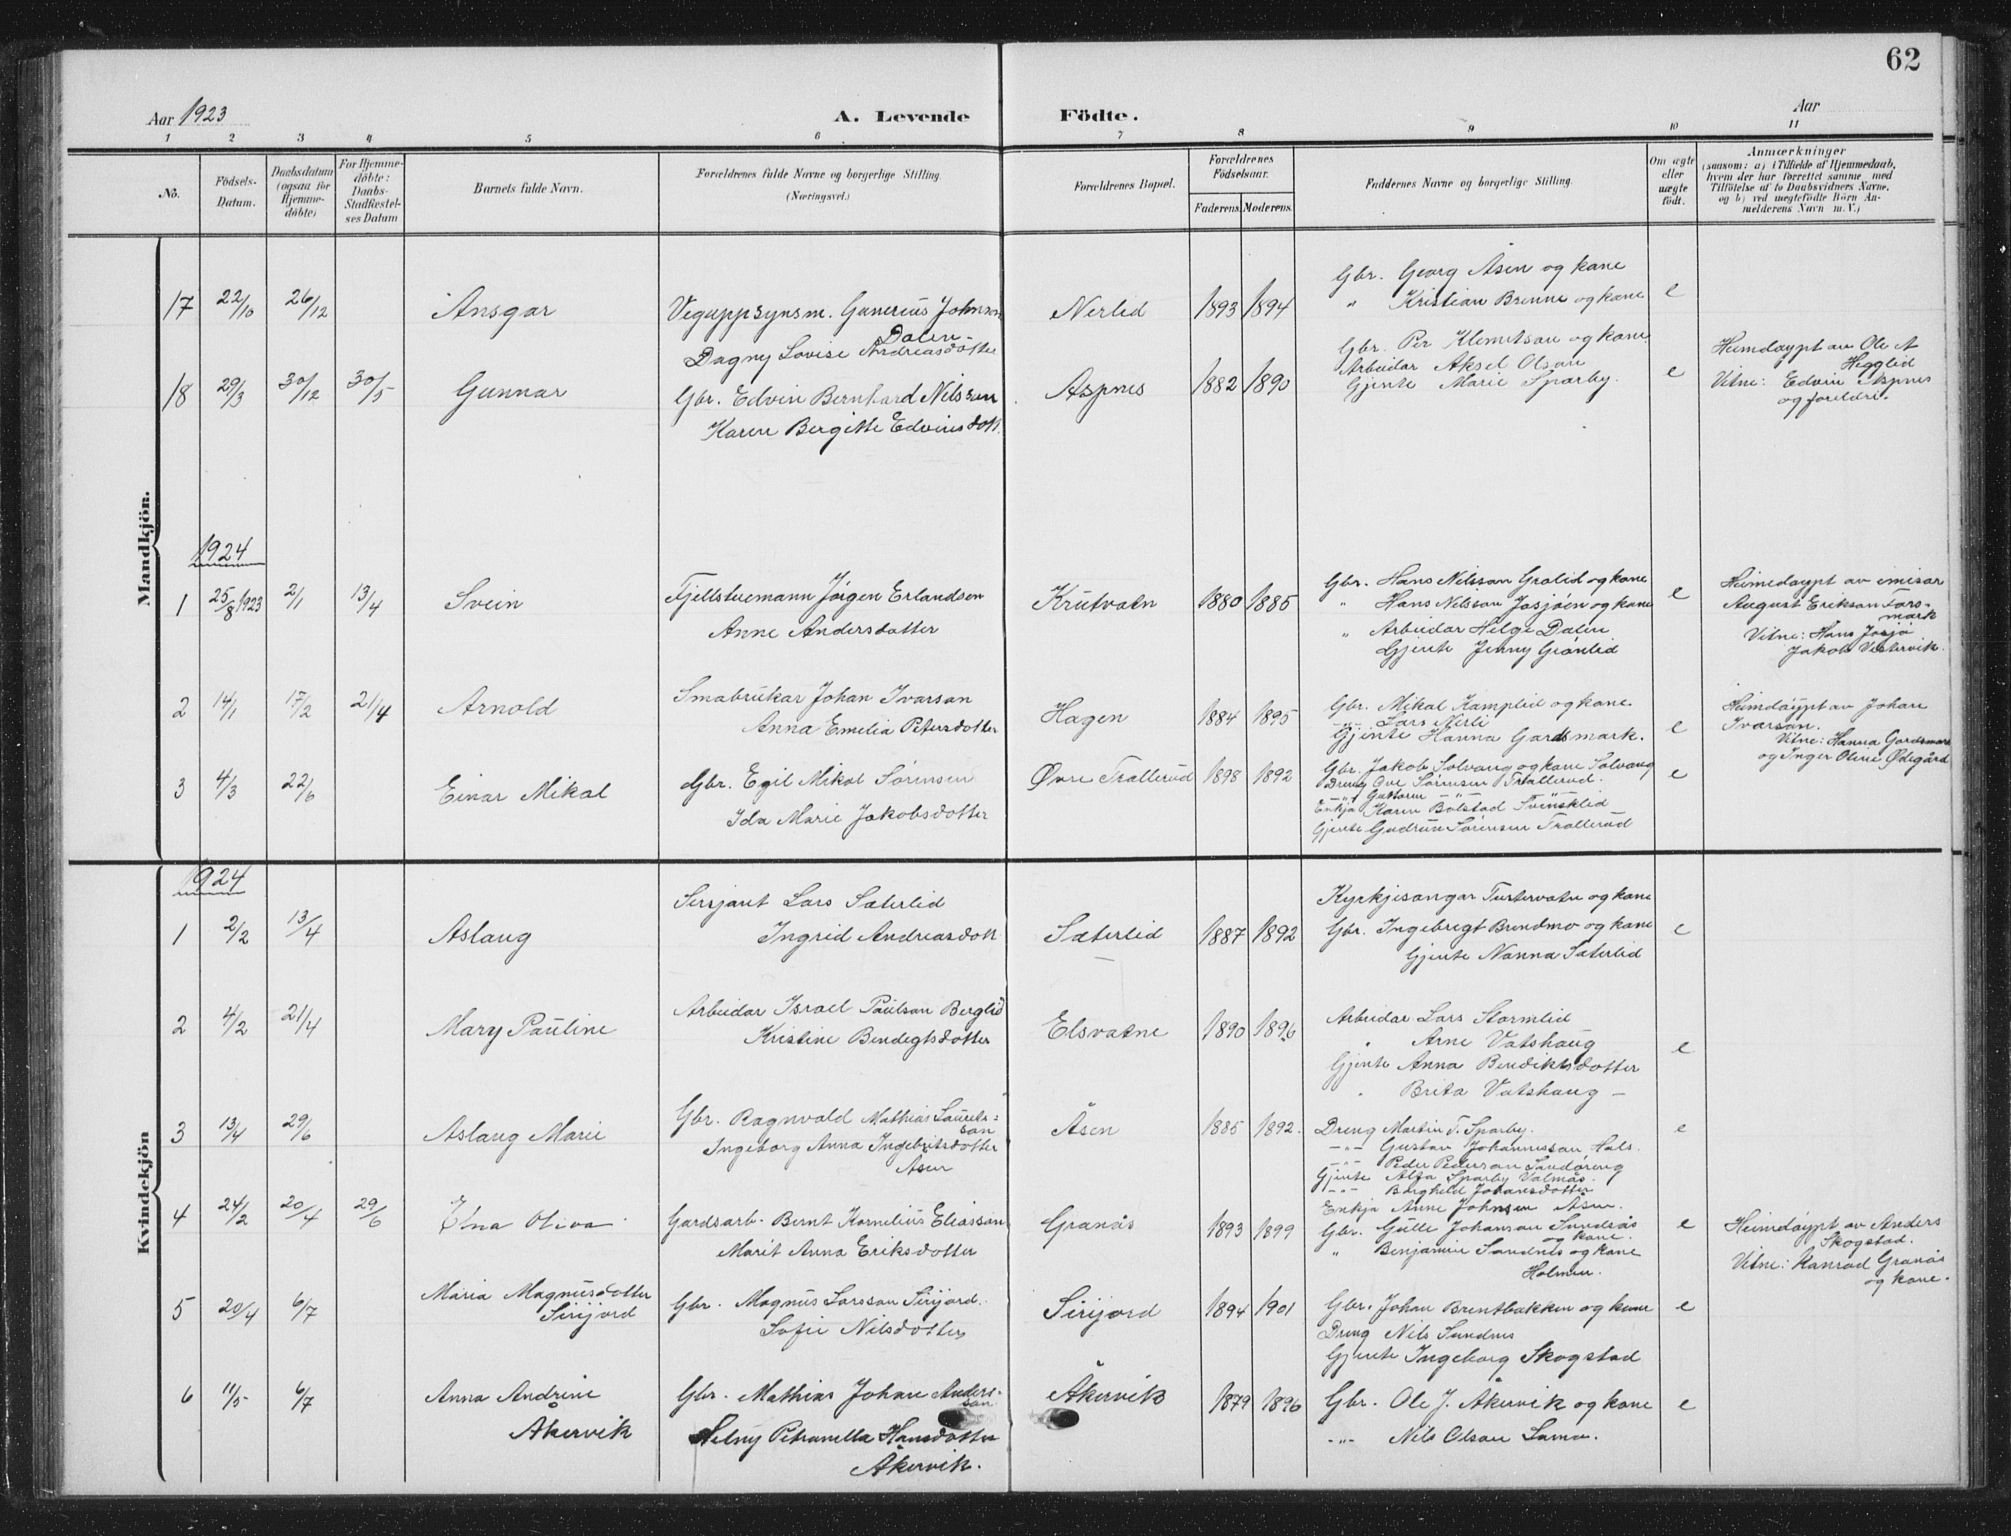 62
Aar 1923
A. Levende Födte.
Aar
1 2 3 4 5 6 7 8 9 10 11
No.
Födsels-
Datum.
Daabsdatum
(ogsaa for
Hjemme-
döbte)
For Hjemme-
döbte:
Daabs-
Stadfæstel-
ses Datum
Barnets fulde Navn.
Forældrenes fulde Navne og borgerlige Stilling.
(Næringsvei.)
Forældrenes Bopæl.
Forældrenes
Födselsaar.
Faderens. Moderens.
Faddernes Navne og borgerlige Stilling.
Om ægte
eller
uægte
födt.
Anmærkninger
(saasom: a) i Tilfælde af Hjemmedaab,
hvem der har forrettet samme med
Tilföielse af to Daabsvidners Navne,
og b) ved uægtefödte Börn An-
melderens Navn m. V.)
Mandkjön.
17 22/10 26/12 Ansgar Vegoppsynsm. Gunerius Johnson Nerlid 1893 1894 e
Dalen
Dagny Lovise Andreasdotter
Gbr. Georg Åsen og kone
" Kristian Brenne og kone
18 29/3 30/12 30/5 Gunnar Gbr. Edvin Bernhard Nilssen Aspnes 1882 1890 e
Karen Bergitte Edvinsdott
Gbr. Per Klemetsan og kane
Arbeidar Aksel Olsan
Gjente Marie Sparby.
Heimdøypt av Ole A
Hegglid
Vitne: Edvin Aspnes
og foreldri.
1924
1 25/8 1923 2/1 13/4 Svein Fjellstuemann Jørgen Erlandson Krutvatn 1880 1885 e
Anne Andersdotter
Gbr. Hans Nilssan Grølid og kane
" Hans Nilsson Jasjøen og kane
" Arbeidar Helge Dalen
Gjente Jenny Grønlid
Heimedøypt av emisær
August Erikson Fors-
mark
Vitne: Hans Jasjø
Jakob Vestervik.
2 14/1 17/2 21/4 Arnold Småbrukar Johan Ivarsan Hagen 1884 1895 e
Anna Emelia Petersdotter
Gbr. Mikal Kamplid og kane
-"- Lars Nerli
Gjente Hanna Gardsmark.
Heimdøypt av Johan
Ivarsan.
Vitne: Hanna Gardsmark
og Inger Oline Ødegård
3 4/3 22/6 Einar Mikal Gbr. Egil Mikal Sørensen Øvre Trallerud 1898 1892 e
Ida Marie Jakobsdotter
Gbr. Jakob Solvang og kane Solvang
Dreng Ove Sørensen Trallerud.
-"- Guttorm -"-
Enkja Karen Bolstad Svensklid
Gjente Gudrun Sørensen Trallerud
Kvindekjön
1924
1 2/2 13/4 Aslaug Sersjant Lars Sæterlid Sæterlid 1887 1892 e
Ingrid Andreasdott
Kyrkjesangar Tustervatn og kane
Gbr. Ingebrigt Brendmo og kane
Gjente Nanna Sæterlid
2 4/2 21/4 Mary Pauline Arbeidar Israel Paulsan Berglid Elsvatne 1890 1896 e
Kristine Bendegtsdotter
Arbeidar Lars Stormlid
" Arne Vatshaug
Gjente Anna Benediktsdotter
" Brita Vatshaug
3 13/4 29/6 Aslaug Marie Gbr. Ragnvald Mathias Laurits- Åsen 1885 1892 e
san
Ingeborg Anna Ingebrigtsdotter
Åsen
Dreng Martin T. Sparby.
-"- Gustav Johannessan Hals.
-"- Peder Pedersan Sandøreng
Gjente Alfa Sparby Valmås.
-"- Borghild Johansdotter
Enkja Anne Johnsen Åsen.
4 24/2 20/4 29/6 Edna Oliva Gardsarb. Bernt Kornelius Eliassan Granås 1893 1899 e
Marit Anna Eriksdotter
Gbr. Gulle Johansan Sundsås
og kane.
" Benjamin Sandnes og kane
Holmen.
Heimdøypt av Anders
Skogstad.
Vitne: Kanrad Granås
og kane.
5 20/4 6/7 Maria Magnusdotter Gbr. Magnus Larssan Sirijord. Sirijord 1894 1901 e
Sirijord Sofie Nilsdotter
Gbr. Johan Brentbakken og kane
Dreng Nils Sundnes
Gjente Ingeborg Skogstad
6 11/5 6/7 Anna Andrine Gbr. Mathias Johan Anders- Åkervik 1879 1896 e
san
Åkervik Helny Petranella Hansdotter
Åkervik.
Gbr. Ole J. Åkervik og kane
-"- Nils Olsan Lama.